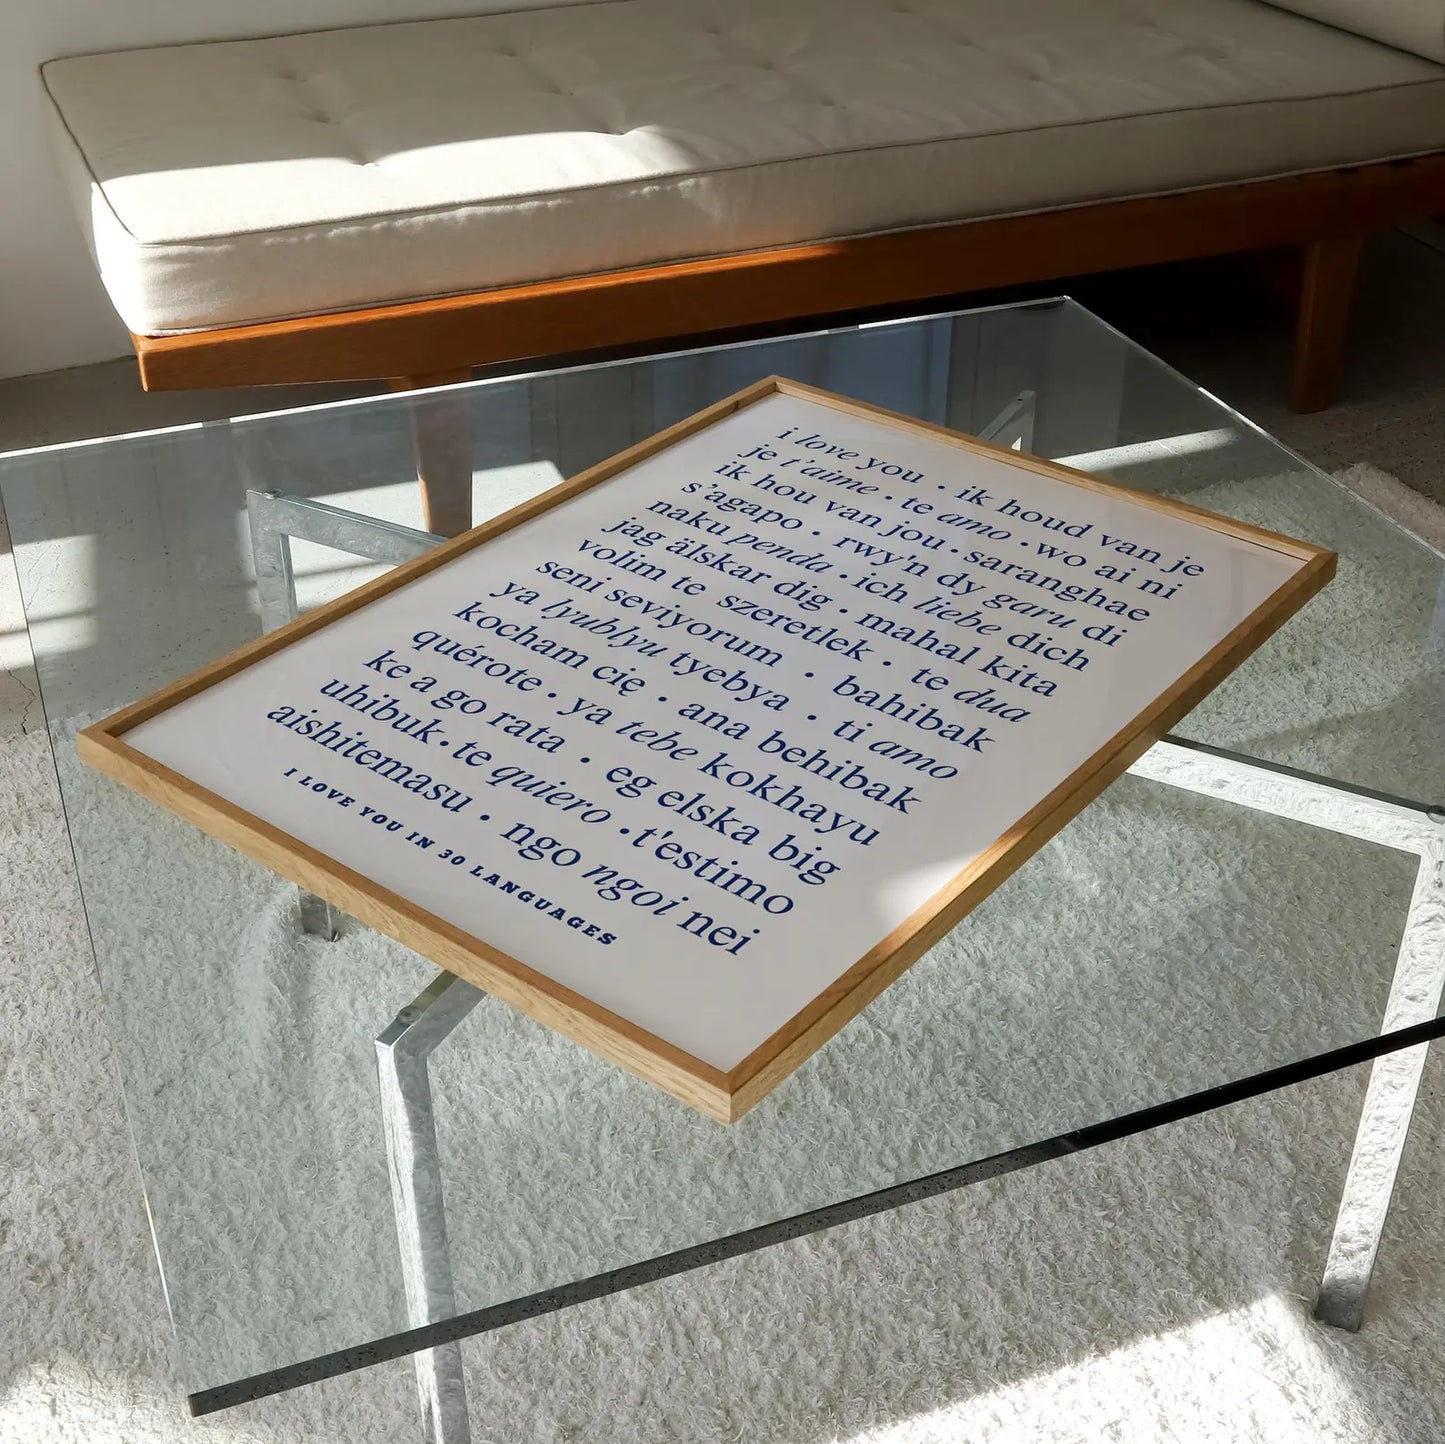 i love you • ik houd van je
je t'aime • te amo • wo ai ni
ik hou van jou • saranghae
s'agapo • rwy'n dy garu di
naku penda • ich liebe dich
jag älskar dig • mahal kita
volim te szeretlek • te dua
seni seviyorum • bahibak
ya lyublyu tyebya • ti amo
kocham cię • ana behibak
quérote • ya tebe kokhayu
ke a go rata • eg elska big
uhibuk • te quiero • t'estimo
aishitemasu • ngo ngoi nei
I LOVE YOU IN 30 LANGUAGES